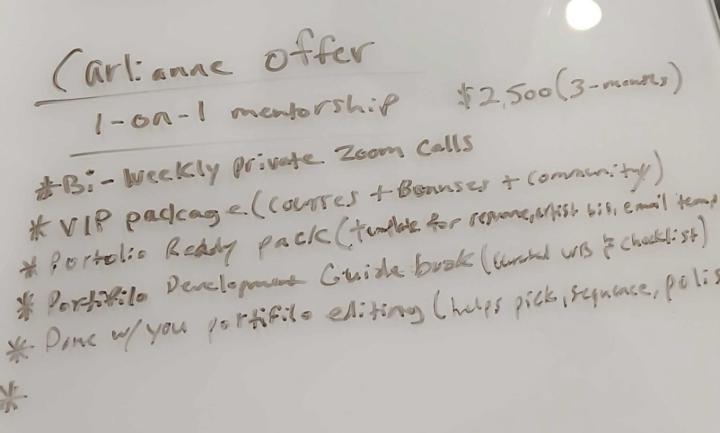 Carlianne offer
1-on-1 mentorship $2,500 (3-months)
* Bi-weekly private Zoom calls
* VIP package (courses + Bonuses + community)
* Portolio Ready pack (template for resume, artist bio, email temp
* Portifilo Development Guide book (curated & checklist)
* Done w/ you portifilo editing (helps pick, sequence, polis
*